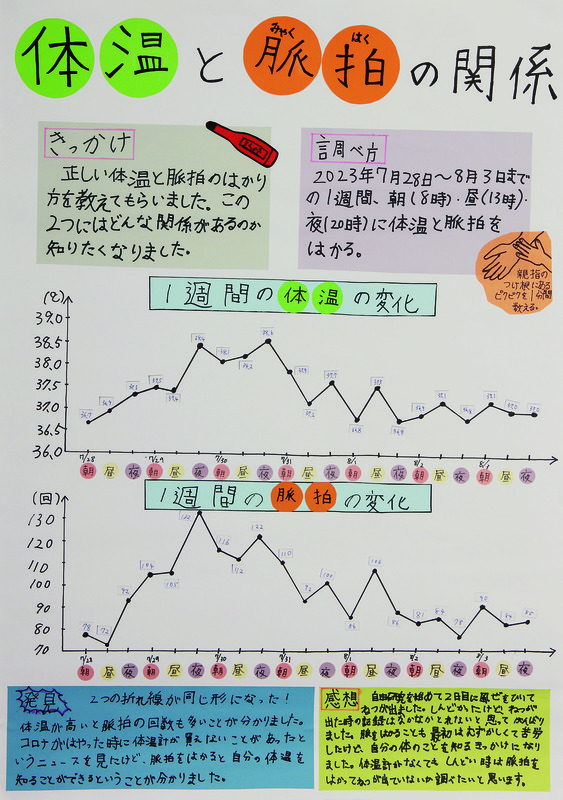 体温と脈拍の関係
みゃく
はく
きっかけ
正しい体温と脈拍のはかり
方を教えてもらいました。この
2つにはどんな関係があるのか
知りたくなりました。
調べ方
2023年7月28日～8月3日まで
の1週間、朝(8時)・昼(13時)・
夜(20時)に体温と脈拍を
はかる。
親指の
つけ根にある
ピクピクを1分間
数える。
1週間の体温の変化
(℃)
39.0
38.5
38.0
37.5
37.0
36.5
36.0
36.7
36.9
37.3
37.5
37.4
38.4
38.1
38.2
38.5
37.8
37.2
37.7
36.8
37.5
36.9
7/28 7/29 7/30 7/31 8/1 8/2
朝 昼 夜 朝 昼 夜 朝 昼 夜 朝 昼 夜 朝 昼 夜 朝 昼 夜 朝 昼 夜
1週間の脈拍の変化
(回)
130
120
110
100
90
80
70
78
72
92
104
105
116
112
122
110
92
100
84
106
86
81
84
75
90
7/28 7/29 7/30 7/31 8/1 8/2 8/3
朝 昼 夜 朝 昼 夜 朝 昼 夜 朝 昼 夜 朝 昼 夜 朝 昼 夜 朝 昼 夜
発見
2つの折れ線が同じ形になった！
体温が高いと脈拍の回数も多いことが分かりました。
コロナがはやった時に体温計が買えないことがあったと
いうニュースを見たけど、脈拍をはかると自分の体温を
知ることができるということが分かりました。
感想
自由研究を始めて2日目に風ぜをひいて
ねつが出ました。しんどかったけど、ねつが
出た時の記録はなかなかとれないと思ってがんばり
ました。脈をはかることも最初はむずかしくて苦労
したけど、自分の体のことを知るきっかけになり
ました。体温計がなくても しんどい時は脈拍を
はかってねつが出ていないか調べたいと思います。